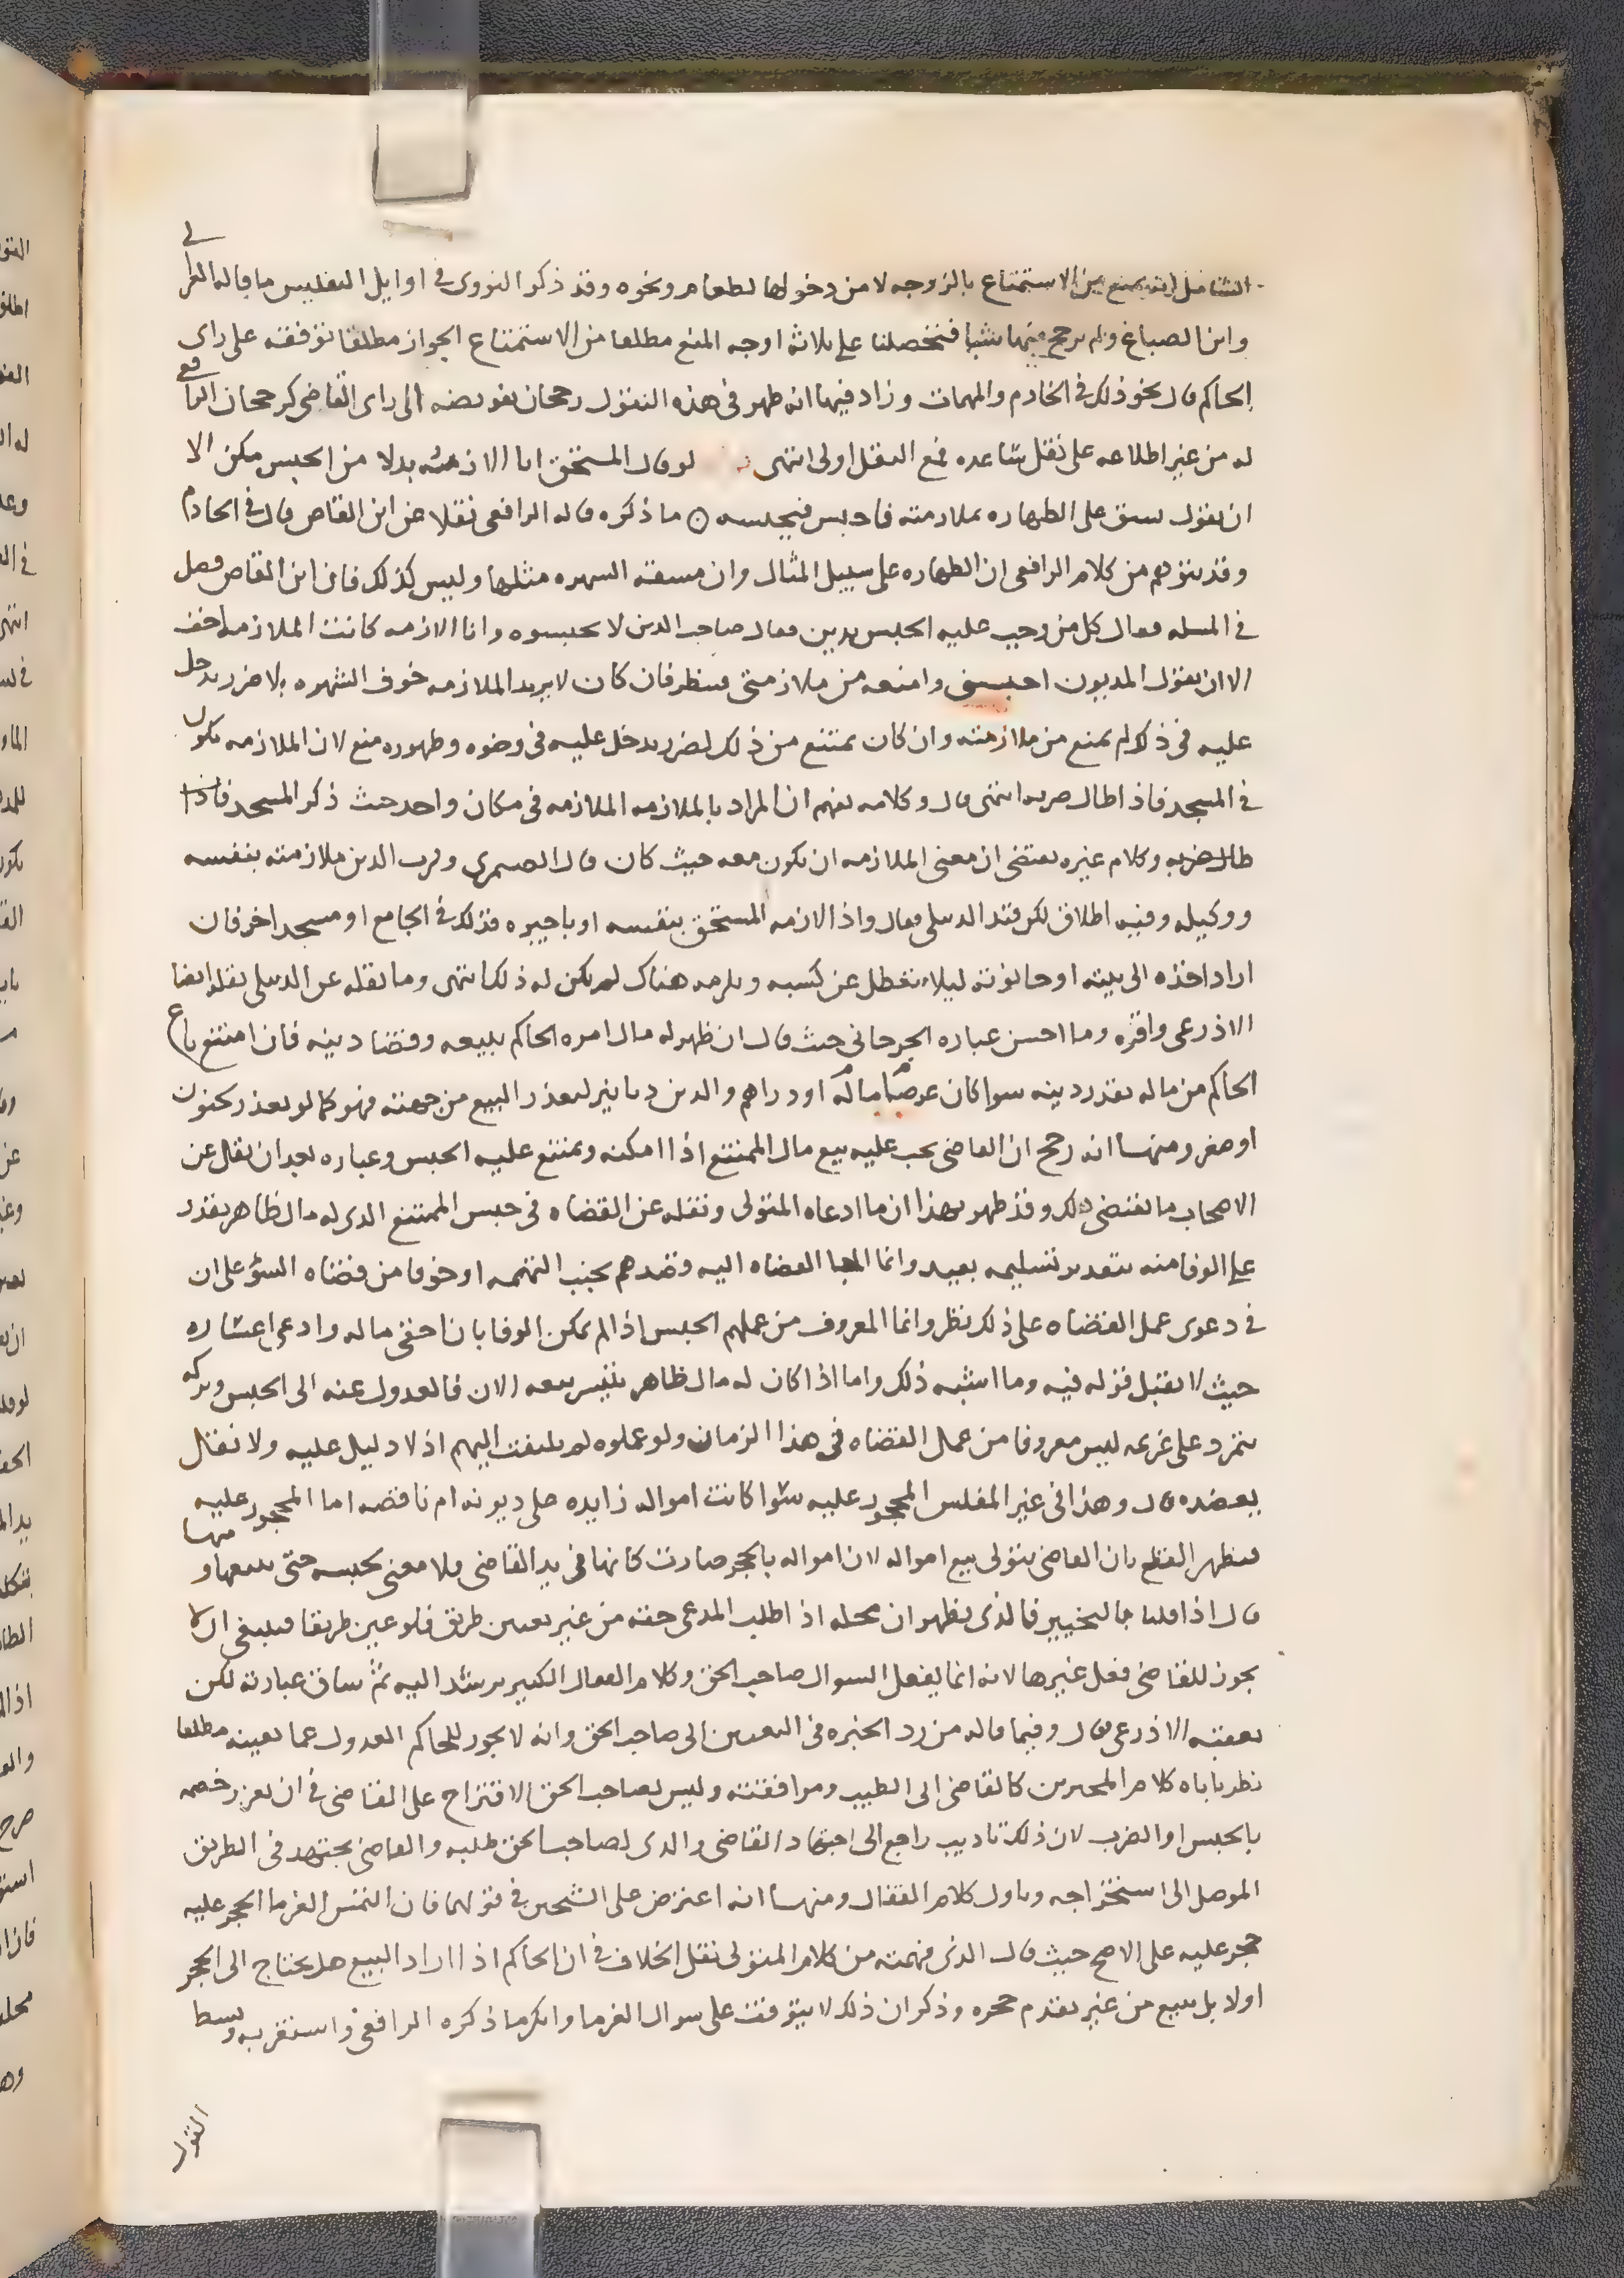 الشامل انه يمنع من الاستمتاع بالزوجه لا من دخولها لطعام ونحوه وقد ذكر النووى فى اوايل التفليس ما قاله الغزالى
وابن الصباغ ولم يرجح منهما شيا فتحصلنا على ثلاثه اوجه المنع مطلقا من الاستمتاع الجواز مطلقا توقفه على راى
الحاكم قال نحو ذلك فى الخادم والمهمات وزاد فيها انه ظهر فى هذه النقول رجحان تفويضه الى راى القاضى كرجحان الرافعى
له من غير اطلاعه على نقل يساعده فمع النقل اولى انتهى لو قال المستحق انا الازمه بدلا من الحبس مكن الا
ان يقول يشق على الطهاره بملازمته فاحبس فيحبسه ما ذكره قاله الرافعى نقلا عن ابن القاص قال فى الخادم
وقد يتوهم من كلام الرافعى ان الطهاره على سبيل المثال وان مشقه الشهره مثلها وليس كذلك فان ابن القاص فصل
فى المسله فقال كل من وجب عليه الحبس بدين فقال صاحب الدين لا تحبسوه وانا الازمه كانت الملازمه اخف
الا ان يقول المديون احبسنى وامنعه من ملازمتى فينظر فان كان لا يريد الملازمه خوف الشهره ولا ضرر يدخل
عليه فى ذلك لم يمنع من ملازمته وان كان يمتنع من ذلك لضرر يدخل عليه فى وضوه وطهوره منع لان الملازمه تكون
فى المسجد فاذا طال ضر به انتهى قال وكلامه يفهم ان المراد بالملازمه الملازمه فى مكان واحد حيث ذكر المسجد فاذا
طال ضربه وكلام غيره يقتضى ان معنى الملازمه ان يكون معه حيث كان قال الصيمرى ولرب الدين ملازمته بنفسه
ووكيله وفيه اطلاق لكن قيد الدبيلى فقال واذا لازمه المستحق بنفسه او باجيره فذلك فى الجامع او مسجد اخر فان
اراد اخذه الى بيته او حانوته ليلا يتعطل عن كسبه ويلزمه هناك لم يكن له ذلك انتهى وما نقله عن الدبيلى نقله ايضا
الاذرعى واقره وما احسن عباره الجرجانى حيث قال ان ظهر له مال امره الحاكم ببيعه وقضا دينه فان امتنع باع
الحاكم من ماله بقدر دينه سوا كان عرضا ماله او دراهم والدين دنانير لتعذر البيع من جهته فهو كما لو تعذر بجنون
او صغر ومنها انه رجح ان القاضى يجب عليه بيع مال الممتنع اذا امكنه ويمتنع عليه الحبس وعباره بعد ان نقل عن
الاصحاب ما يقتضى ذلك وقد ظهر بهذا ان ما ادعاه المتولى ونقله عن القضاه فى حبس الممتنع الذى له مال ظاهر يقدر
على الوفا منه بتقدير تسليمه بعيد وانما الجا القضاه اليه وقصدهم تجنب التهمه او خوفا من قضاه السؤ على ان
فى دعوى عمل القضاه على ذلك نظر وانما المعروف من عملهم الحبس اذا لم يمكن الوفا بان اخفى ماله وادعى اعساره
حيث لا يقبل قوله فيه وما اشبه ذلك واما اذا كان له مال ظاهر يتيسر بيعه الان فالعدول عنه الى الحبس وتركه
يتمرد على غريمه ليس معروفا من عمل القضاه فى هذا الزمان ولو عملوه لم يلتفت اليهم اذ لا دليل عليه ولا نقل
يعضده قال وهذا فى غير المفلس المحجور عليه سوا كانت امواله زايده على ديونه ام ناقصه اما المحجور عليه
فيظهر القطع بان القاضى يتولى بيع امواله لان امواله بالحجر صارت كانها فى يد القاضى فلا معنى لحبسه حتى يبيعها ومنها
قال اذا قلنا بالتخيير فالذى يظهر ان محله اذا طلب المدعى حقه من غير تعيين طريق فلو عين طريقا فينبغى ان لا
يجوز للقاضى فعل غيرها لانه انما يفعل السوال صاحب الحق وكلام القفال الكبير يرشد اليه ثم ساق عبارته لكن
تعقبه الاذرعى فقال وفيما قاله من رد الخيره فى التعيين الى صاحب الحق وانه لا يجوز للحاكم العدول عما تعينه مطلقا
نظر ياباه كلام المخيرين كالقاضى ابى الطيب ومرافقته وليس لصاحب الحق الاقتراح على القاضى فى ان يعزر خصمه
بالحبس او الضرب لان ذلك تاديب راجع الى اجتهاد القاضى والذى لصاحب الحق طلبه والقاضى يجتهد فى الطريق
الموصل الى استخراجه وتاول كلام القفال ومنها انه اعترض على الشيخين فى قولهما فان التمس الغرما الحجر عليه
حجر عليه على الاصح حيث قال الذى فهمته من كلام المتولى نقل الخلاف فى ان الحاكم اذا اراد البيع هل يحتاج الى الحجر
اولا بل يبيع من غير تقدم حجره وذكر ان ذلك لا يتوقف على سوال الغرما وانكر ما ذكره الرافعى واستغربه وبسط
القول